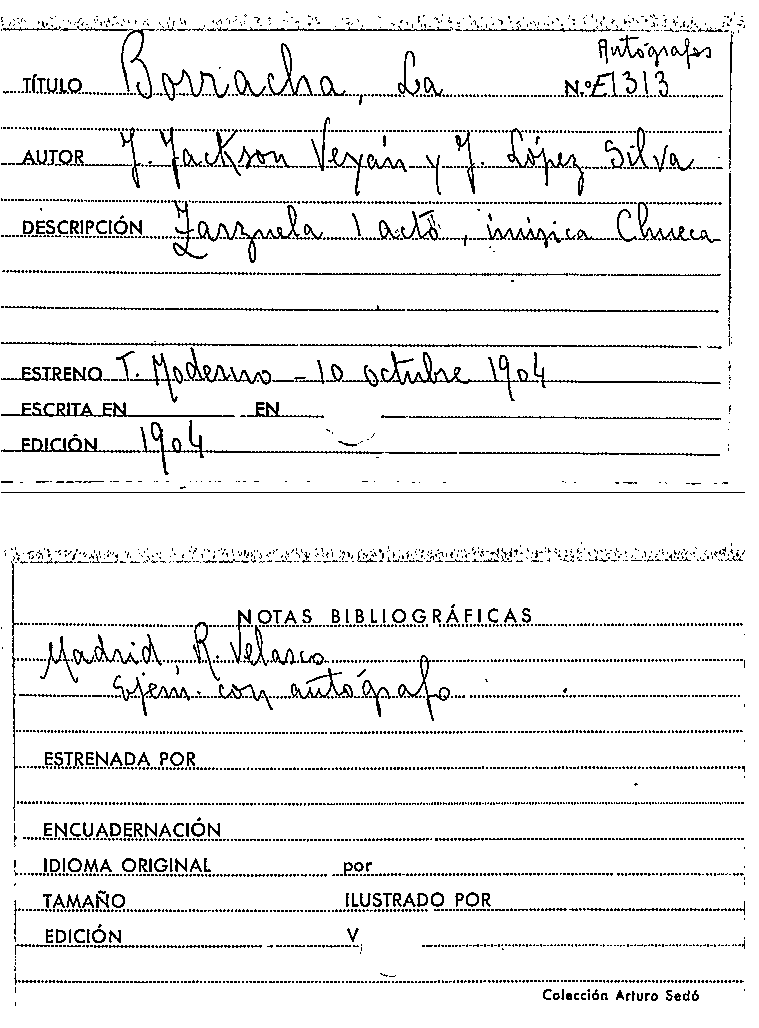 Autógrafes
TÍTULO Borracha, La N.º E1313
AUTOR J. Jackson Veyán y J. López Silva
DESCRIPCIÓN Zarzuela 1 acto, música Chueca
ESTRENO T. Moderno - 10 octubre 1904
ESCRITA EN EN
EDICIÓN 1904
NOTAS BIBLIOGRÁFICAS
Madrid, R. Velasco
Ejem. con autógrafo
ESTRENADA POR
ENCUADERNACIÓN
IDIOMA ORIGINAL por
TAMAÑO ILUSTRADO POR
EDICIÓN V
Colección Arturo Sedó